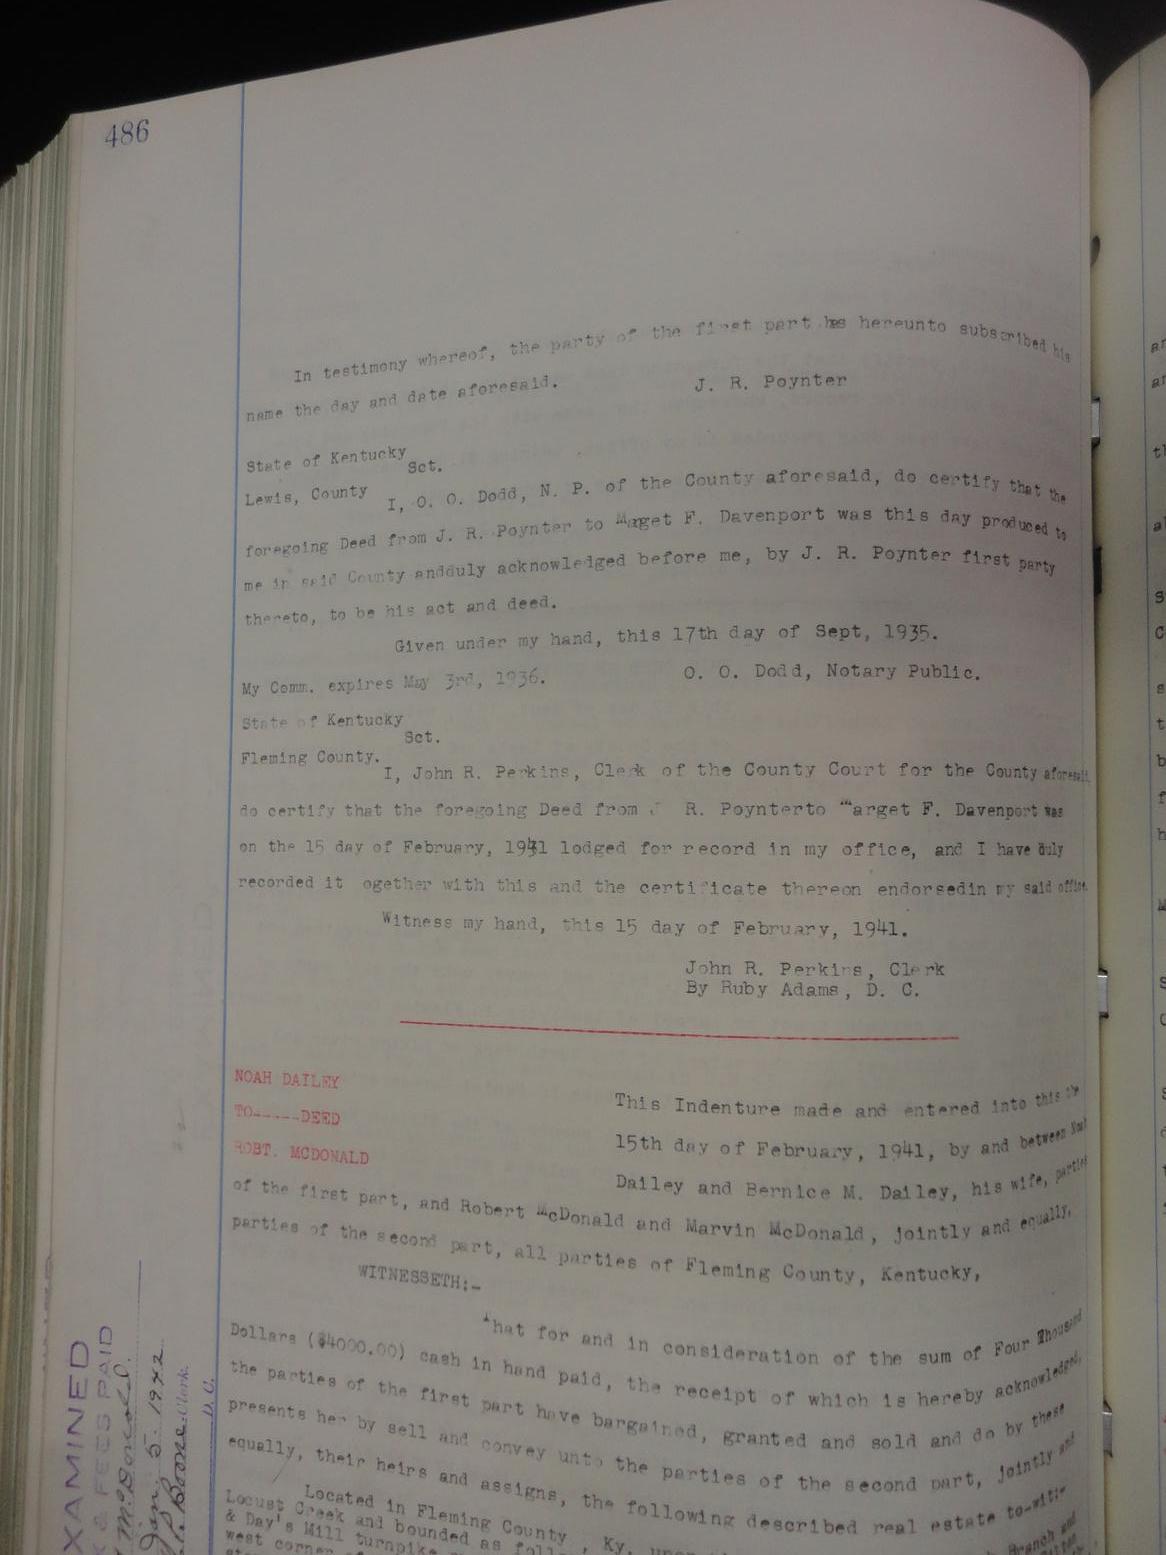 486
In testimony whereof, the party of the first part has hereunto subscribed his
name the day and date aforesaid. J. R. Poynter
State of Kentucky
Sct.
Lewis, County
I, O. O. Dodd, N. P. of the County aforesaid, do certify that the
foregoing Deed from J. R. Poynter to Marget F. Davenport was this day produced to
me in said County andduly acknowledged before me, by J. R. Poynter first party
thereto, to be his act and deed.
Given under my hand, this 17th day of Sept, 1935.
My Comm. expires May 3rd, 1936. O. O. Dodd, Notary Public.
State of Kentucky
Sct.
Fleming County.
I, John R. Perkins, Clerk of the County Court for the County aforesaid
do certify that the foregoing Deed from J R. Poynterto Marget F. Davenport was
on the 15 day of February, 1941 lodged for record in my office, and I have duly
recorded it ogether with this and the certificate thereon endorsedin my said office.
Witness my hand, this 15 day of February, 1941.
John R. Perkins, Clerk
By Ruby Adams, D. C.
NOAH DAILEY
TO------DEED
ROBT. MCDONALD
This Indenture made and entered into this the
15th day of February, 1941, by and between Noah
Dailey and Bernice M. Dailey, his wife, parties
of the first part, and Robert McDonald and Marvin McDonald, jointly and equally,
parties of the second part, all parties of Fleming County, Kentucky,
WITNESSETH:-
That for and in consideration of the sum of Four Thousand
Dollars ($4000.00) cash in hand paid, the receipt of which is hereby acknowledged,
the parties of the first part have bargained, granted and sold and do by these
presents her by sell and convey unto the parties of the second part, jointly and
equally, their heirs and assigns, the following described real estate to-wit:-
Located in Fleming County, Ky. Branch and
Locust Creek and bounded as
& Day's Mill turnpike
west corner
EXAMINED
& FEES PAID
McDonald.
Jan. 5 1942
Boone Clerk.
D.C.